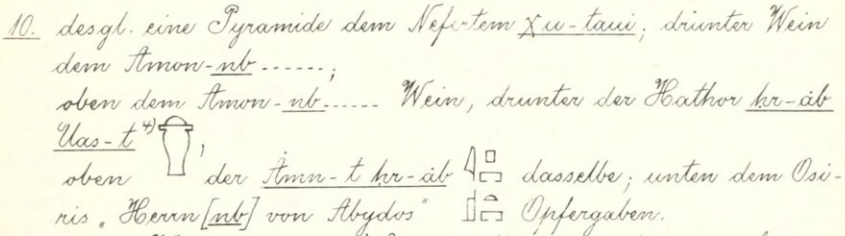 10. desgl. eine Pyramide dem Nefertem χu-taui; drunter Wein
dem Amon-nb ------;
oben dem Amon-nb ------ Wein, drunter der Hathor hr-áb
Uas-t 4) ,
oben der Ámn-t hr-áb dasselbe; unten dem Osi-
ris „Herrn [nb] von Abydos" Opfergaben.